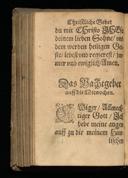 Christliche Gebet
du mit Christo JESU
deinem lieben Sohne/ un
dem werden heiligen Gei
ste/ lebest und regierest/ im
mer und ewiglich/ Amen.
Das Nachtgebet
auff die Mitwochen.
EWiger/ Allmech
tiger Gott/ Ich
hebe meine augen
auff zu dir meinem Him
lischen